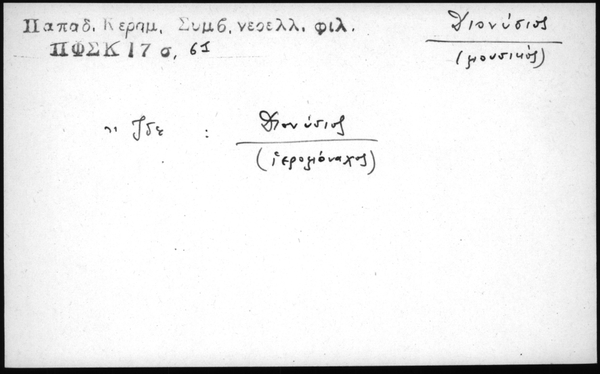 Παπαδ. Κεραμ. Συμβ. νεοελλ. φιλ.
ΠΦΣΚ 17 σ. 61
Διονύσιος
(μουσικός)
Ἴδε : Διονύσιος
(ἱερομόναχος)